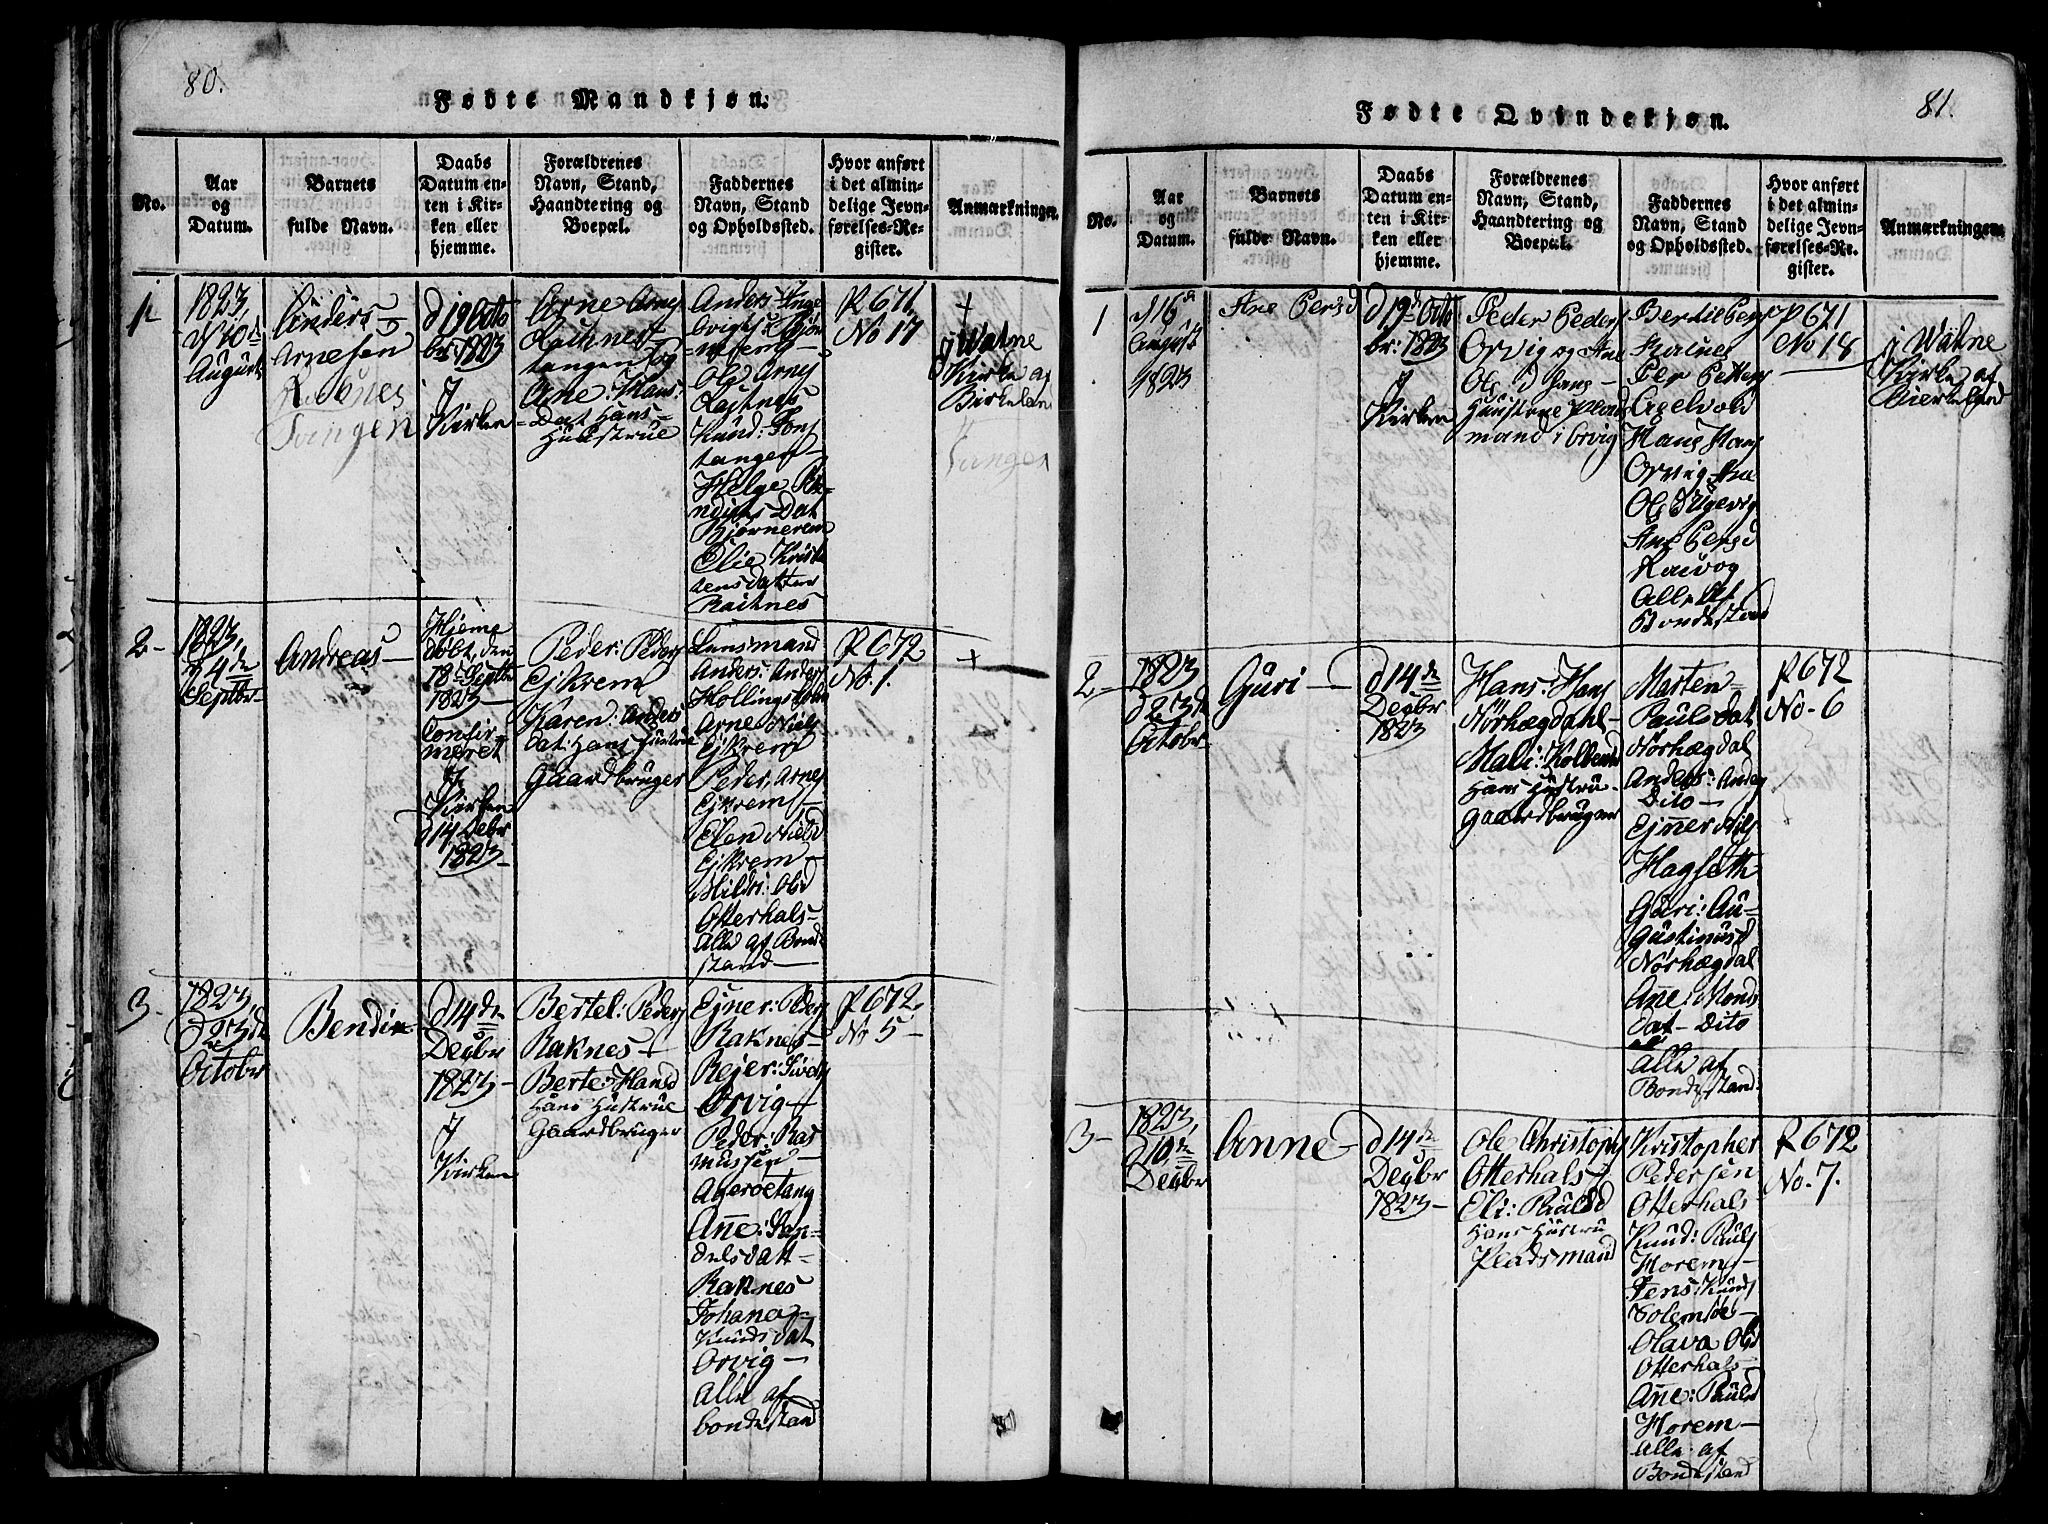 80.
Fødte Mandkjøn.
No.
Aar
og
Datum.
Barnets
fulde Navn.
Daabs
Datum en-
ten i Kir-
ken eller
hjemme.
Forældrenes
Navn, Stand,
Haandtering og
Boepæl.
Faddernes
Navn, Stand
og Opholdssted.
Hvor anført
i det almin-
delige Jevn-
førelses-Re-
gister.
Anmærkninger.
1
1823,
d 10de
August
Anders
Arnesen
Raknes
Tangen
d 19 Octo
br: 1823
J
Kirken
Arne Arns
tangen og
Ane: Hans:
Dat Hans
Hustrue
Anders: Inge
Ole Arns
Knud: Jons
tangen
Helge
Dat
Elie Krist
ensdatter
Raknes
P 671,
No 17
+
J Watne
Kirke af
Birkeland
Tangen
2-
1823,
d 4de
Septbr
Andreas
Hjeme
døbt, den
18de Septbr
1823
Confir
meret
J
Kirken
d 14 Debr
1823-
Peder: Peders
Ejkrem
Karen: Anders
Dat: Hans Hustrue
Gaardbruger
Lensmand
Anders: Anders
Hollingsholm
Arne Niels
Ejkrem
Peder, Arns
Ejkrem
Elen Nielsd
Ejkrem
Mildri: Olsd
Otterhals
Alle af Bonde
stand
P 672
No. 1.
+
3-
1823,
d 23de
October
Bendix
d 14de
Decbr
1823-
J
Kirken
Bertel: Peders
Raknes
Berte: Hansd
Hans Hustrue
Gaardbruger
Ejner: Peders
Raknes
Rejer: Siverts
Orvig
Peder: Ras
mussen
Ageroetang
Ane:
delsdatt
Raknes
Johana
Knudsdat
Orvig
Alle af
bondestand
P 672.
No 5-
81.
Fødte Qvindekjøn.
No.
Aar
og
Datum.
Barnets
fulde Navn.
Daabs
Datum en-
ten i Kir-
ken eller
hjemme.
Forældrenes
Navn, Stand,
Haandtering og
Boepæl.
Faddernes
Navn, Stand
og Opholdssted.
Hvor anført
i det almin-
delige Jevn-
førelses-Re-
gister.
Anmærkninger.
1
d 16de
August
1823
Ane Persd
d 19de Octo
br: 1823
J
Kirken
Peder Peders
Orvig og Ane
Ols d hans
Hustrue Plads
mand i Orvig
Bertil Pers
Raknes
Per Petters
Hans Hans
Orvig Ane
Ane Persd
Alle af
Bondestand
P 671
No 18
i Watne
Kirke af
Birkeland
2-
1823
d 23de
October
Guri
d 14de
Decbr
1823
Hans: Hans
Nørhægdahl
Mali: Kolbensd
Hans Hustru
Gaardbruger
Marten
Paulsdat
Nørhægdal
Anders: Anders
Dito
Ejner Nils
Hagseth
Guri: Au-
gustinusd
Nørhægdal
Ane: Monds
Dat- Dito
Alle af
Bondestand
P 672
No- 6
3-
1823,
d 10de
Decbr
Anne
d 14de
Decbr
1823-
Ole Christoph
Otterhals
Eli: Paulsd
Hans Hustru
Pladsmand
Kristopher
Pedersen
Otterhals
Knud: Pauls
Horem
Jens: Knuds
Solemsøe
Olava Olsd
Otterhals
Ane: Paulsd
Horem
Alle af
Bondestand
P 672
No. 7.